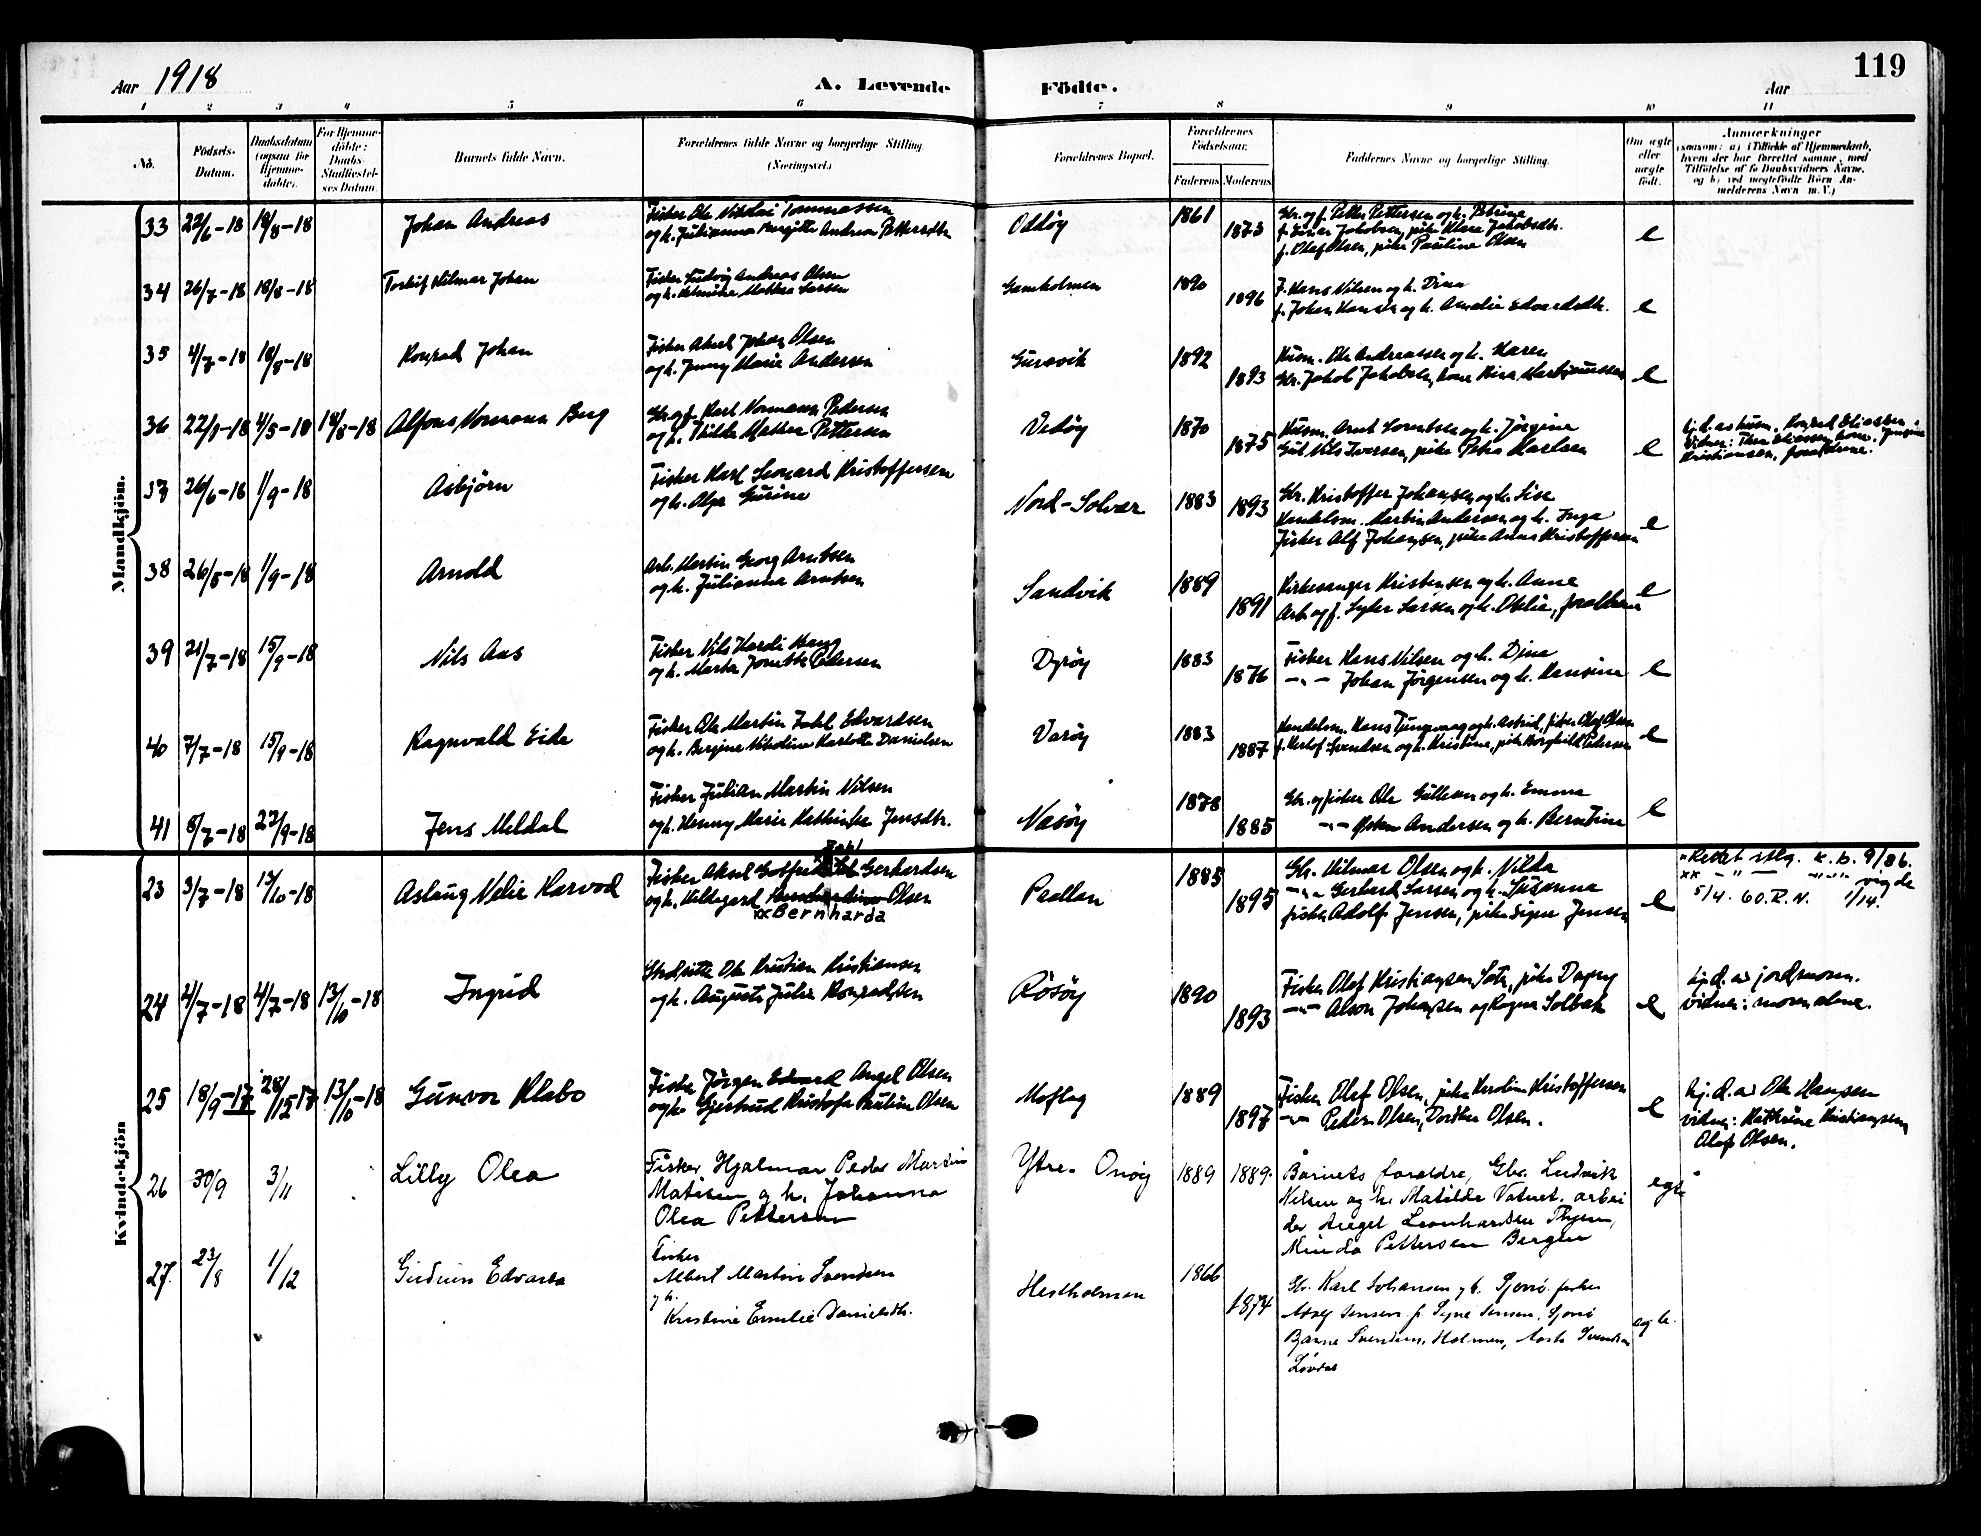 Aar 1918
A. Levende
Födte.
Aar
119
1 2 3 4 5 6 7 8 9 10 11
No.
Födsels-
Datum.
Daabsdatum
(ogsaa for
Hjemme-
döbte).
For Hjemme-
döbte:
Daabs-
Stadfæstel-
ses Datum.
Barnets fulde Navn.
Forældrenes fulde Navne og borgerlige Stilling
(Næringsvei.)
Forældrenes Bopæl.
Forældrenes
Födselsaar.
Faderens Moderens
Faddernes Navne og borgerlige Stilling.
Om ægte
eller
uægte
födt.
Anmærkninger
(saasom: a) i Tilfælde af Hjemmedaab,
hvem der har forrettet samme, med
Tilföielse af to Daabsvidners Navne,
og b) ved uægtefödte Börn An-
melderens Navn m. V.)
Mandkjön.
33 22/6-18 18/8-18 Johan Andreas
Fisker Ole Nikolai Tommassen
og h. Julianna Birgitte Andrea Pettersdtr.
Oddöy 1861 1873
Gbr. og f. Petter Pettersen og h. Petrine
f. Einar Jakobsen, pike Klara Jakobsdtr.
f. Olaf Olsen, pike Pauline Olsen
e
34 26/7-18 18/8-18 Torleif Hilmar Johan
Fisker Ludvig Andreas Olsen
og h. Mathea Larsen
Gamholmen 1890 1896
F. Hans Nilsen og h. Dina
f. Johan Hansen og h. Amelie Edvardsdtr.
e
35 4/7-18 18/8-18 Konrad Johan
Fisker Aksel Johan Olsen
og h. Jenny Marie Andersen
Gursvik 1892 1893
Husm. Ole Andreassen og h. Karen
Gbr. Jakob Jakobsen, kone
e
36 22/1-18 4/5-18 18/8-18 Alfons Normann Berg
Gbr. og f. Karl Normann Pedersen
og h. Thilda Mathea Pettersen
Vedöy 1870 1875
Husm. Arnt Lorentsen og h. Jörgine
Gut Nils Iversen, pike Petra Karlsen
e
hj.d. av husm. Konrad Eliassen.
Vidner: Thea Eliassen, kone, Jensine
Kristiansen, foreldrene.
37 26/6-18 1/9-18 Asbjörn
Fisker Karl Leonard Kristoffersen
og h. Alfa Gurine
Nord-Solvær 1883 1893
Gbr. Kristoffer Johansen og h. Lise
Handelsm. Martin Andersen og h. Inga
Fisker Alf Johansen, pike Anna Kristoffersen
e
38 26/5-18 1/9-18 Arnold
Arb. Martin Georg Arntsen
og h. Julianna Arntsen
Sandvik 1889 1891
Kirkesanger Kristensen og h. Anne
Arb. og f. Syler Larsen og h. Otelie, foreldrene
e
39 21/7-18 15/9-18 Nils Aas
Fisker Nils Hardi Haug
og h. Marta Jonette Pedersen
Dyröy 1883 1876
Fisker Hans Nilsen og h. Dina
-"- Johan Jörgensen og h. Hansine
e
40 7/7-18 15/9-18 Ragnvald Eide
Fisker Ole Martin Dahl Edvardsen
og h. Bergine Nikoline Karlotte Danielsen
Varöy 1883 1887
Handelsm. Hans Tjungvaag og h. Astrid, fisker Olaf Olsen
f. Herlof Svendsen og h. Kristine, pike Borghild Pedersen
e
41 8/7-18 22/9-18 Jens Meldal
Fisker Julian Martin Nilsen
og h. Henny Marie Kathinka Jensdtr.
Næsöy 1878 1885
Gbr. og fisker Ole Gulliksen og h. Emma
-"- Andersen og h. Berntine
e
Kvindekjön
23 3/7-18 13/10-18 Aslaug Nelie Harvod
Fisker Aksel Gotfred Gerhardsen
og h. Hildegard Olsen
xx Bernharda
Padlan 1885 1895
Gbr. Hilmar Olsen og h. Nilda
-"- Gerhard Larsen og h. Susanna
fisker Adolf Jensen, pike Signe Jensen
e
x Rettet iflg. k.b. 9/86.
xx -"- -"- vigde
5/4. 60. R.N. 1/14.
24 4/7-18 4/7-18 13/10-18 Ingrid
Strandsitter Ole Kristian Kristiansen
og h. Augusta Julie Konradsen
Rösöy 1890 1893
Fisker Olaf Kristiansen Sætr, pike Dagny
-"- Alson Johansen og Ragna Solbak
e
hj.d. av jordmoren.
vidner: moren alene.
25 18/9-17 28/12-17 13/10-18 Gunvor Klabo
Fisker Jörgen Edvard Angel Olsen
og h. Gjertrud Kristofa Pauline Olsen
Moflag 1889 1897
Fisker Olaf Olsen, pike Karoline Kristoffersen
-"- Peder Olsen, Dorthea Olsen.
e
hj.d. av Ole Hansen
vidner: Kathrine Kristiansen,
Olaf Olsen.
26 30/9 3/11 Lilly Olea
Fisker Hjalmar Peder Martin
Matisen og h. Johanna
Olea Pettersen
Ytre-Onöy 1889 1889.
Barnets foraldre, Gbr. Ludvik
Nilsen og h. Matilde Vatnet. arbei
der Leonhardsen Thyrm,
Minda Pettersen Bergen
egte
27. 23/8 1/12 Gudrun Edvarda
Fisker
Albert Martin Svendsen
og h.
Kristine Emilie Danielsdtr.
Hestholmen 1866 1874
Gbr. Karl Johansen og h. Sjonö. fisker
Adolf Jensen p. Signe Jensen, Sjonö
Bjarne Svendsen, Holmen, Aasta Svendsen
Lövdal
egte.